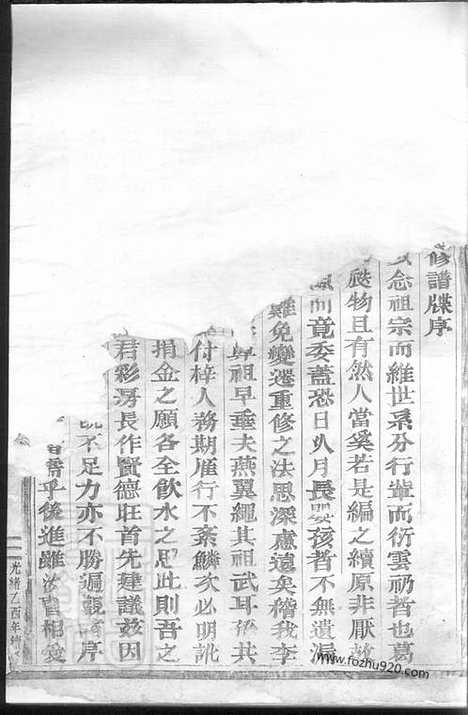 修譜牒序
念祖宗而維世系分行輩而衍雲礽者也葛
物且有然人當奚若是編之續原非厭故
而竟委蓋恐日久月長嬰孩者不無遺漏
難免變遷重修之法思深慮遠矣稽我李
祖早垂夫燕翼繩其祖武耳孫共
付梓人務期雁行不紊鱗次必明訛
捐金之願各全飲水之思此則吾之
君彩房長作賢德旺首先建議茲因
不足力亦不勝遍観 序
乎後進雖 相
光緒乙酉年
www.fozhu920.com